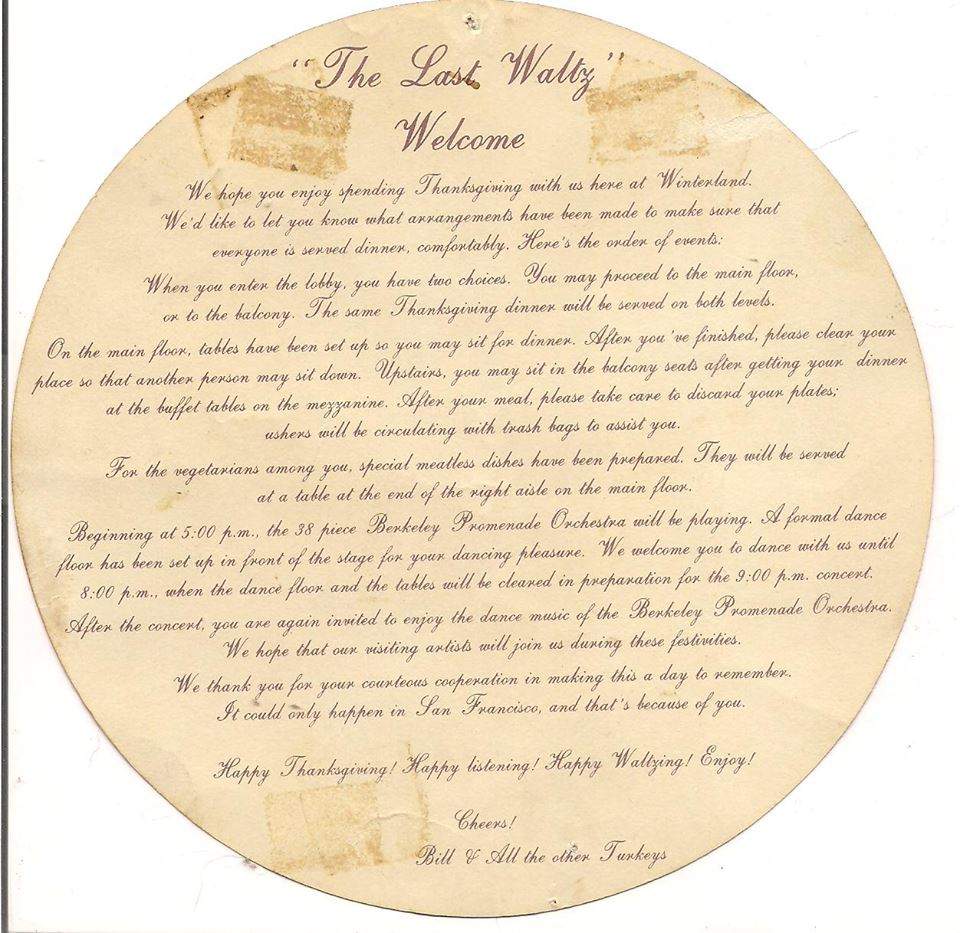 “The Last Waltz”
Welcome
We hope you enjoy spending Thanksgiving with us here at Winterland.
We'd like to let you know what arrangements have been made to make sure that
everyone is served dinner, comfortably. Here's the order of events:
When you enter the lobby, you have two choices. You may proceed to the main floor,
or to the balcony. The same Thanksgiving dinner will be served on both levels.
On the main floor, tables have been set up so you may sit for dinner. After you've finished, please clear your
place so that another person may sit down. Upstairs, you may sit in the balcony seats after getting your dinner
at the buffet tables on the mezzanine. After your meal, please take care to discard your plates;
ushers will be circulating with trash bags to assist you.
For the vegetarians among you, special meatless dishes have been prepared. They will be served
at a table at the end of the right aisle on the main floor.
Beginning at 5:00 p.m., the 38 piece Berkeley Promenade Orchestra will be playing. A formal dance
floor has been set up in front of the stage for your dancing pleasure. We welcome you to dance with us until
8:00 p.m., when the dance floor and the tables will be cleared in preparation for the 9:00 p.m. concert.
After the concert, you are again invited to enjoy the dance music of the Berkeley Promenade Orchestra.
We hope that our visiting artists will join us during these festivities.
We thank you for your courteous cooperation in making this a day to remember.
It could only happen in San Francisco, and that's because of you.
Happy Thanksgiving! Happy listening! Happy Waltzing! Enjoy!
Cheers!
Bill & All the other Turkeys